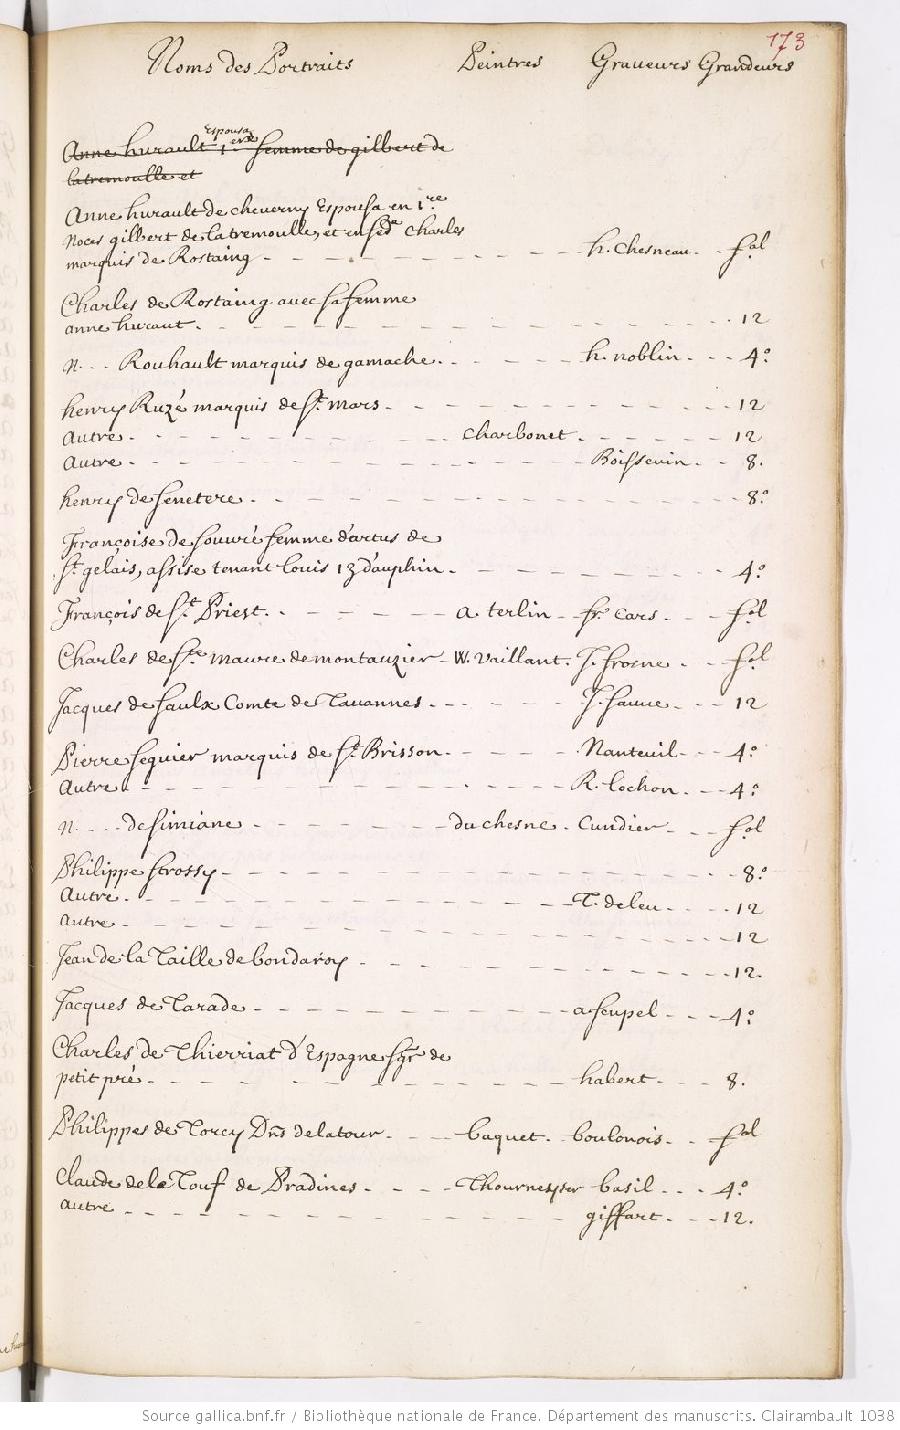 173
Noms des Portraits Peintres Graveurs Grandeurs
Espousa
Anne hurault, en 1re femme de gilbert de
latremoulle et
Anne hurault de cheverny Espousa en 1re
Noces gilbert de latremoulle, et en sede Charles
marquis de Rostaing - - - h. Chesneau - - fol
Charles de Rostaing avec sa femme
anne huraut - - - 12
n... Rouhault marquis de gamache - - - h. noblin - - - 4°
henry Ruzé marquis de St. mars - - - 12
autre - - - charbonet - - - 12
autre - - - Boissevin - - 8.
henry de senetere - - - 8°
Françoise de souvré femme d'artus de
St. gelais, assise tenant louis 13 dauphin - - - 4°
François de St. Priest - - - a terlin - fr. cars - - fol
Charles de Ste maure de montauzier - W. Vaillant. J. frosne - - fol
Jacques de saulx Comte de Tavannes - - - J. sauve - - - 12
Pierre seguier marquis de St. Brisson - - - Nanteuil - - - 4°
autre - - - R. lochon - - - 4°
n.... de simiane - - - du chesne - Cundier - - - fol
Philippe strossy - - - 8°
autre - - - T. de leu - - - 12
autre - - - 12
Jean de la Taille de bondaroy - - - 12.
Jacques de Tarade - - - a seupel - - - 4°
Charles de Thierriat d'Espagne sgr de
petit pré - - - habert - - - 8.
Philippes de Torcy Dns de latour - - - baquet. boulonois - - fol
Claude de la Touf de Pradines - - - Thourneyser basil - - - 4°
autre - - - giffart - - - 12.
Source gallica.bnf.fr / Bibliothèque nationale de France. Département des manuscrits. Clairambault 1038